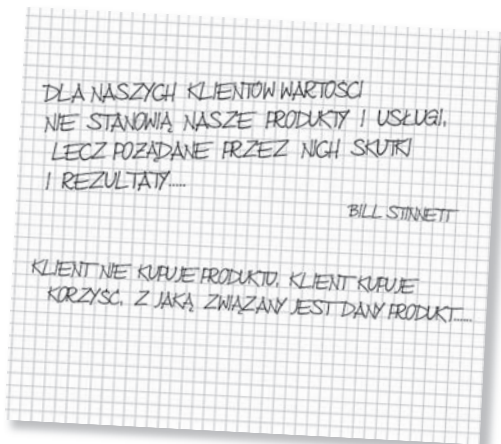 DLA NASZYCH KLIENTÓW WARTOŚCI
NIE STANOWIĄ NASZE PRODUKTY I USŁUGI,
LECZ POŻĄDANE PRZEZ NICH SKUTKI
I REZULTATY.....
BILL STINNETT
KLIENT NIE KUPUJE PRODUKTU. KLIENT KUPUJE
KORZYŚĆ, Z JAKĄ ZWIĄZANY JEST DANY PRODUKT.....